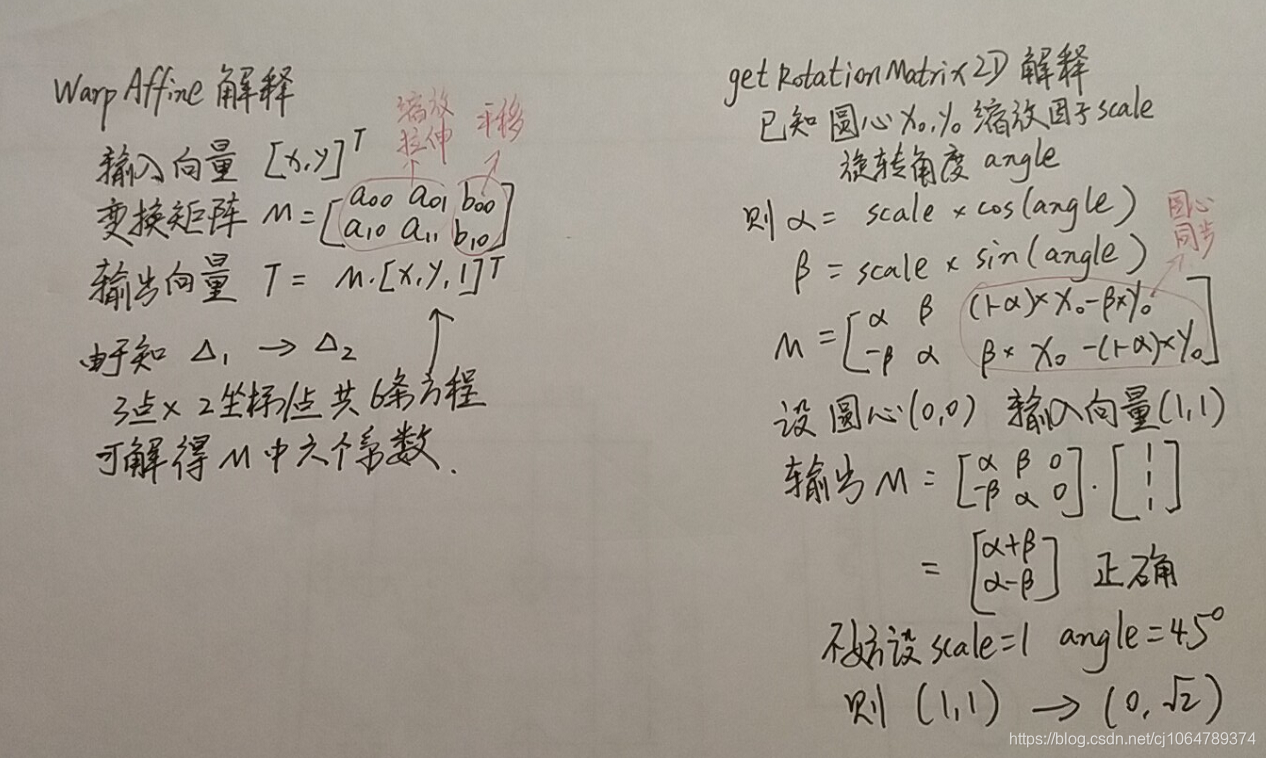 Warp Affine 解释
缩放
拉伸
平移
输入向量 [x,y]^T
变换矩阵 M = [a00 a01 b00
a10 a11 b10]
输出向量 T = M·[x,y,1]^T
由于知 Δ1 → Δ2
3点×2坐标/点共6条方程
可解得M中六个系数.
getRotationMatrix2D 解释
已知圆心 X0,Y0 缩放因子scale
旋转角度 angle
则 α = scale × cos(angle)
圆心
同步
β = scale × sin(angle)
M = [α β (1-α)×X0-β×Y0
-β α β×X0-(1-α)×Y0]
设圆心(0,0) 输入向量(1,1)
输出M = [α β 0
-β α 0]·[1
1
1]
= [α+β
α-β] 正确
不妨设scale=1 angle=45°
则 (1,1) → (0,√2)
https://blog.csdn.net/cj1064789374